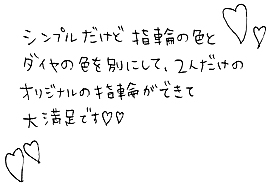 シンプルだけど指輪の色と
ダイヤの色を別にして、2人だけの
オリジナルの指輪ができて
大満足です♡♡